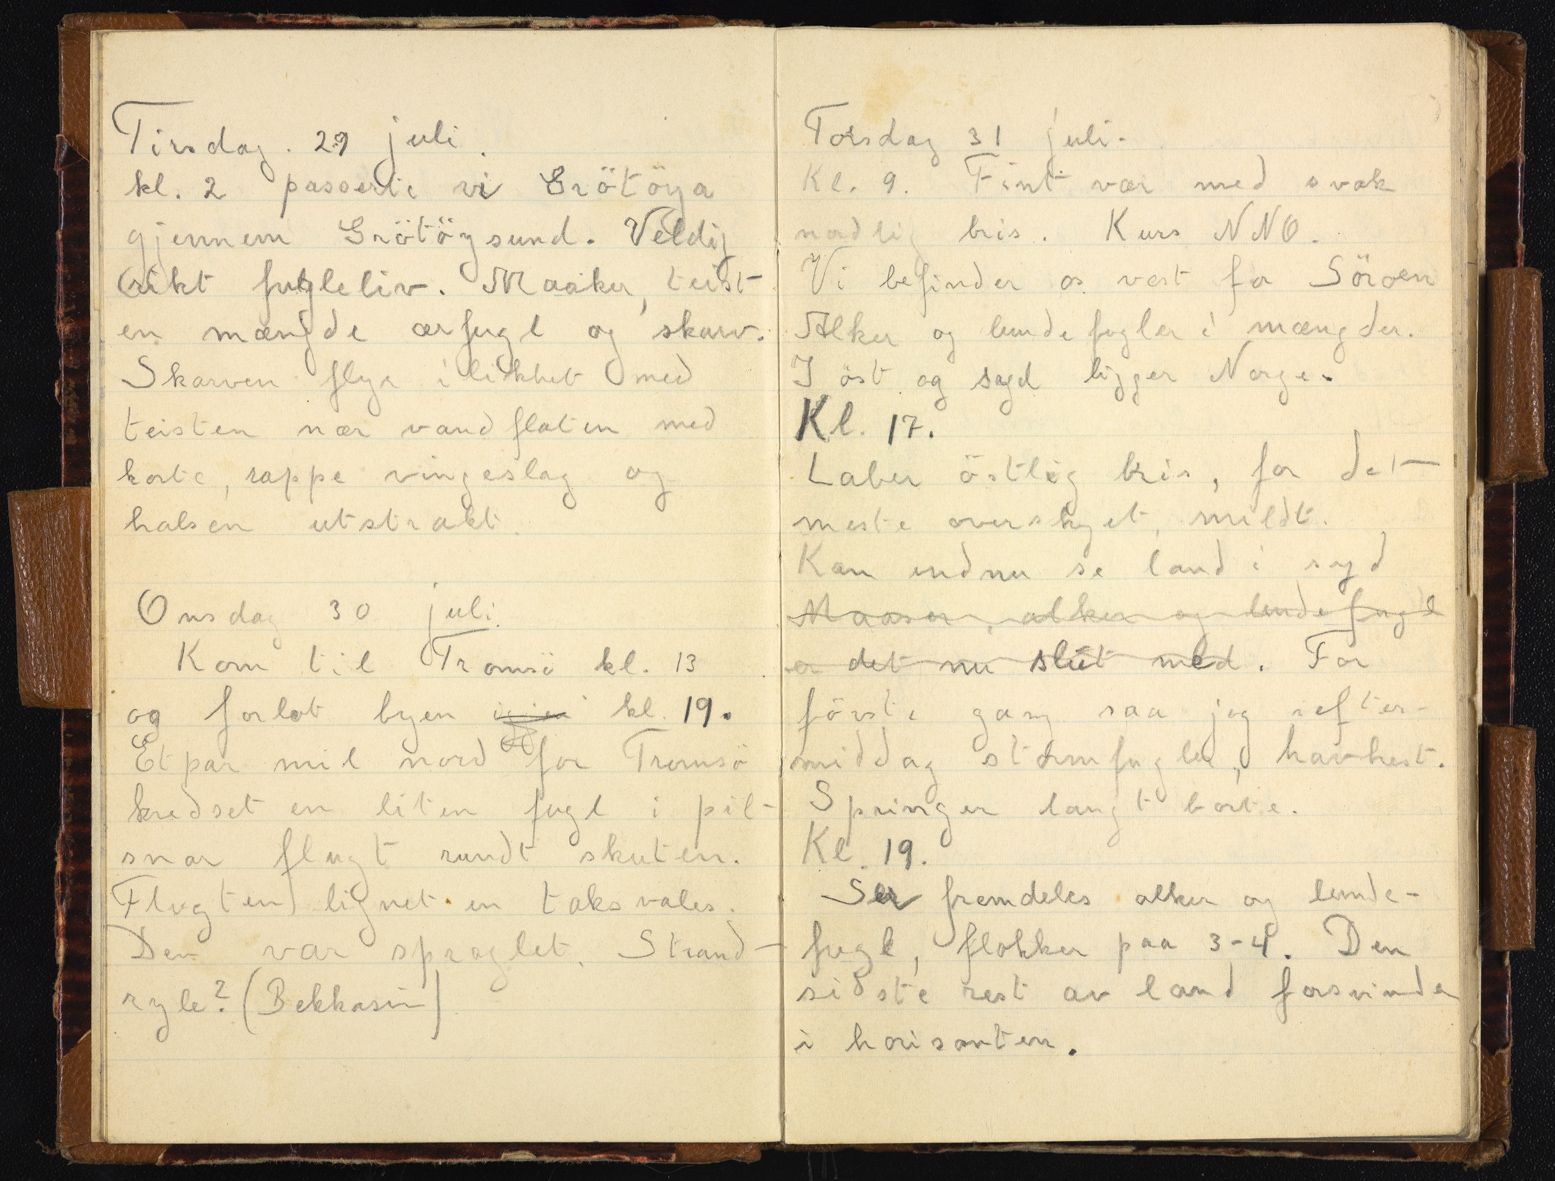 Tirsdag. 29 juli.
kl. 2 passerte vi Grötöya
gjennem Grötöysund. Veldig
rikt fugleliv. Maaker, teist
en mængde ærfugl og skarv.
Skarven flyr i likhet med
teisten nær vandflaten med
korte, rappe vingeslag og
halsen utstrakt.
Onsdag 30 juli.
Kom til Tromsö kl. 13
og forlot byen igjen kl. 19.
Et par mil nord for Tromsö
kredset en liten fugl i pil-
snar flugt rundt skuten.
Flugten lignet en taksvales.
Den var spraglet. Strand-
ryle? (Bekkasin)
Torsdag 31 juli.
Kl. 9. Fint vær med svak
nordlig bris. Kurs NNO.
Vi befinder os vest for Söröen
Alker og lundefugler i mængder.
I öst og syd ligger Norge.
Kl. 17.
Laber östlig bris, for det
meste overskyet, mildt.
Kan endnu se land i syd
Maaser, alker og lundefugl
er det nu slut med. For
förste gang saa jeg iefter-
middag stormfugler, havhest.
Springer langt borte.
Kl. 19.
Ser fremdeles alker og lunde-
fugl, flokker paa 3-4. Den
sidste rest av land forsvinder
i horisonten.